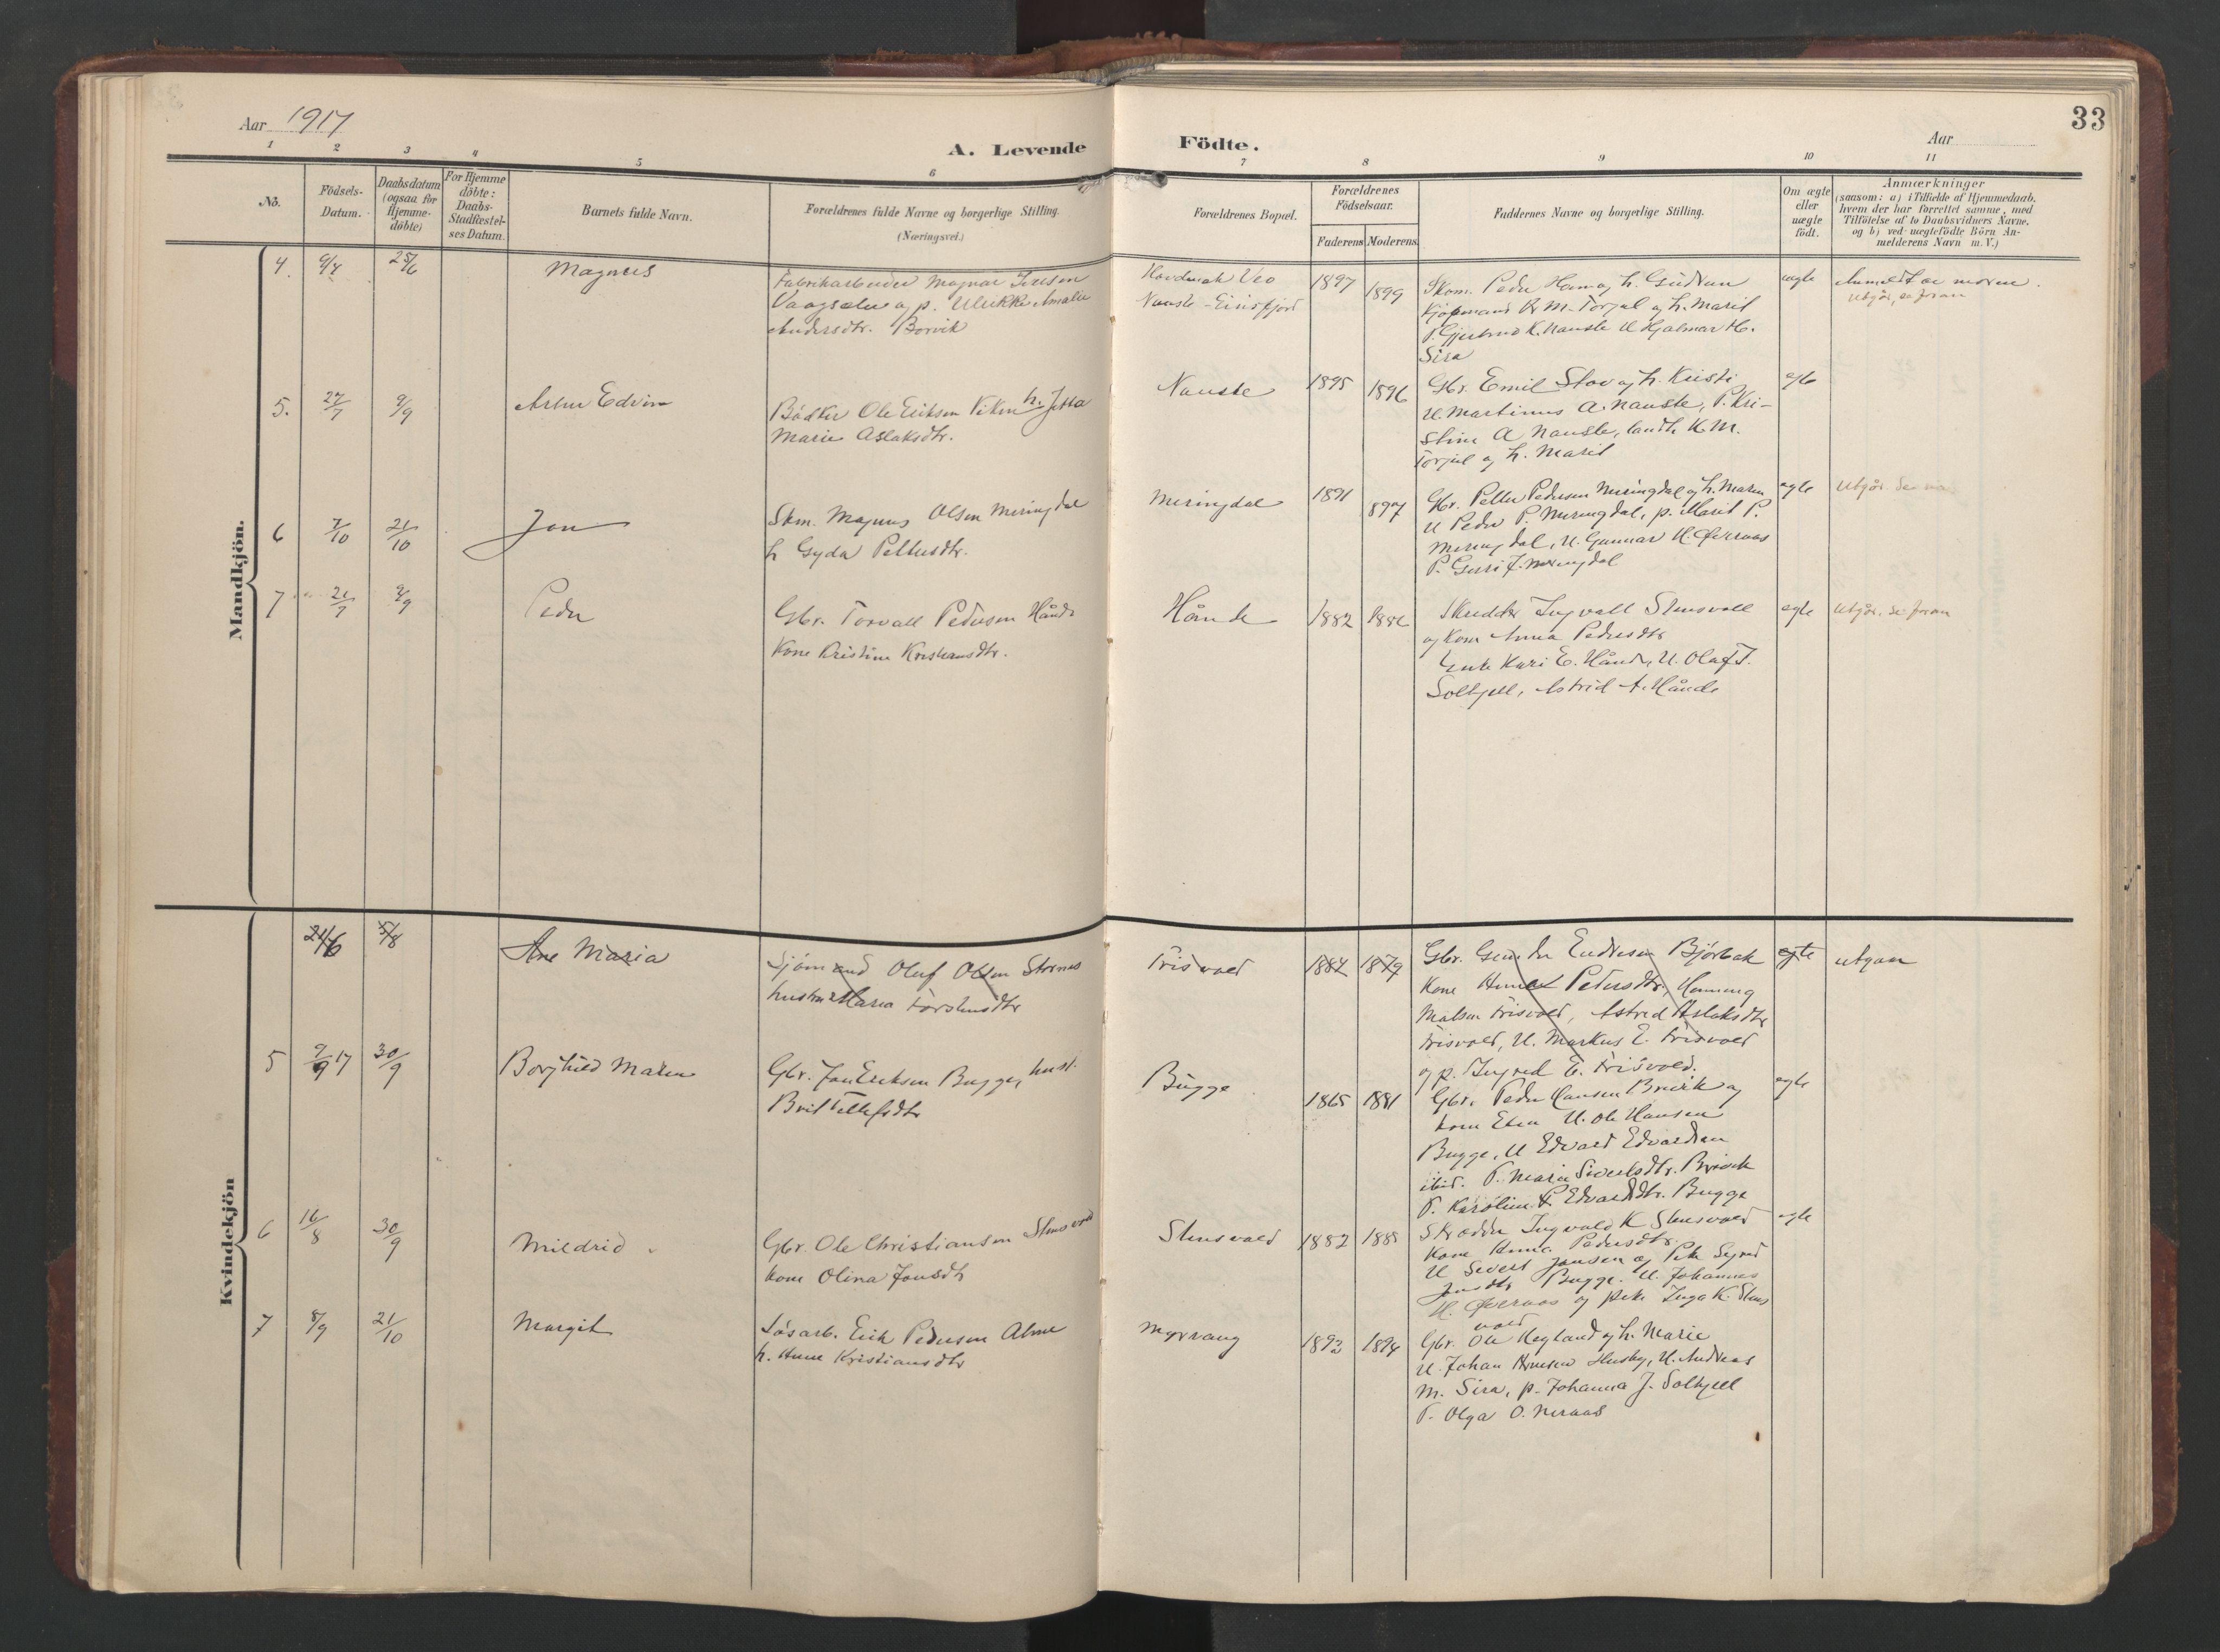 33
Aar 1917
A. Levende Födte.
Aar
1 2 3 4 5 6 7 8 9 10 11
No.
Födsels-
Datum.
Daabsdatum
(ogsaa for
Hjemme-
döbte)
For Hjemme
döbte:
Daabs-
Stadfæstel-
ses Datum.
Barnets fulde Navn.
Forældrenes fulde Navne og borgerlige Stilling.
(Næringsvei.)
Forældrenes Bopæl.
Forældrenes
Födselsaar.
Faderens Moderens
Faddernes Navne og borgerlige Stilling.
Om ægte
eller
uægte
födt.
Anmærkninger
(saasom: a) i Tilfælde af Hjemmedaab,
hvem der har forrettet samme, med
Tilföielse af to Daabsvidners Navne,
og b) ved uægtefödte Börn An-
melderens Navn m. V.)
Mandkjön.
4. 25/6 Magnus
Fabrikarbeider Magnar Iversen
og p. Ulrikke Amalie
Andersdtr. Borvik
Nauste - Eirisfjord
1897 1899
Skom. Peder Ham og h. Gudrun
Kjøpmand K. M. Torjul og h. Marit
P. Gjertrud K. Nauste U Hjalmar H.
Sira
ægte
Anmeldt av moren.
Utgår, se foran
5. 27/7 9/9 Artur Edvin
Bødker Ole Eriksen Viken h. Jetta
Marie Aslaksdtr.
Nauste
1895 1896
Gbr. Emil Stov og h. Kirsti
U. Martinus A. Nauste, P. Kri-
stine A Nauste, landh. K. M.
Torjul og h. Marit
egte
6 7/10 21/10 Jon
Skm. Magnus Olsen Meringdal
h Gyda Pettersdtr.
Meringdal
1891 1897
Gbr. Petter Pedersen Meringdal og h. Maren
U Peder P. Meringdal, p. Marit P.
Meringdal, U. Gunnar H. Øveraas
P. Guri J. Meringdal
egte
Utgår. Se
7 21/7 2/9 Peder
Gbr. Torvall Pedersen Hånde
Kone Kristine Kristensdtr.
Hånde
1882
Skredder Ingvall Stensvoll
og Kone Anna Pedersdtr
Enke Kari E. Hånde, U. Olaf T.
Soltjell, Astrid A. Hånde
egte
Utgår. Se foran
Kvindekjön
24/6 5/8 Ane Maria
Sjømand Oluf Olsen Strines
hustru Maria Torstensdtr
Frisvold
1884 1879
Gbr. Gunder Endresen Bjørbak
Kone Anne Petersdtr, Henning
Matsen Frisvold, Astrid Aslaksdtr
Frisvold, U. Markus E. Frisvold
og p. Ingrid E. Frisvold.
egte
utgaar
5 9/9 17 30/9 Borghild Maren
Gbr. Jon Eriksen Bugge, hust.
Brit Tellefsdtr
Bugge
1865 1881
Gbr. Peder Hansen Brevik og
Kone Elen U. Ole Hansen
Bugge, U Edvard Edvardsen
ibid. P. Marie Sivertsdtr. Brevik
P. Karoline P. Edvardsdtr. Bugge
egte
6 16/8 30/9 Mildrid
Gbr. Ole Christiansen Stensvold
Kone Olina Jonsdtr
Stensvold
1882 1885
Skrædder Ingvald K Stensvold
Kone Anna Pedersdtr.
U Sivert Jonsen og Pike Sigrid
Jonsdtr Bugge. U. Johannes
H. Øveraas og pike Inga K. Stens
vold
egte
7 8/9 21/10 Margit
Løsarb. Erik Pedersen Alme
h. Anne Kristiansdtr
Myrvang
1892 1894
Gbr. Ole Hegland og h. Marie
U. Johan Arnesen Husby, U. Andreas
M. Sira, p. Johanna J. Soltjell
P. Olga O. Neraas